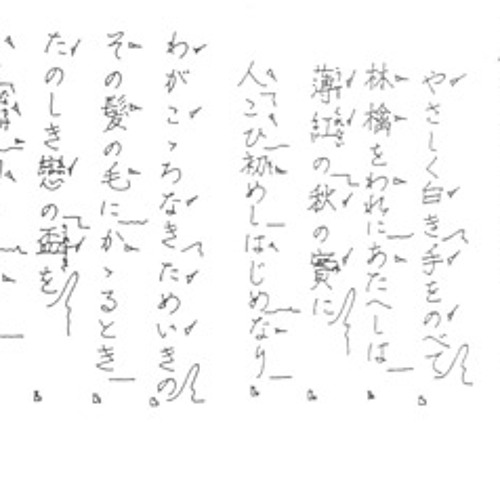 やさしく白き手をのべて
林檎をわれにあたへしは
薄紅の秋の實に
人こひ初めしはじめなり
わがこゝろなきためいきの
その髪の毛にかゝるとき
たのしき戀の盃を